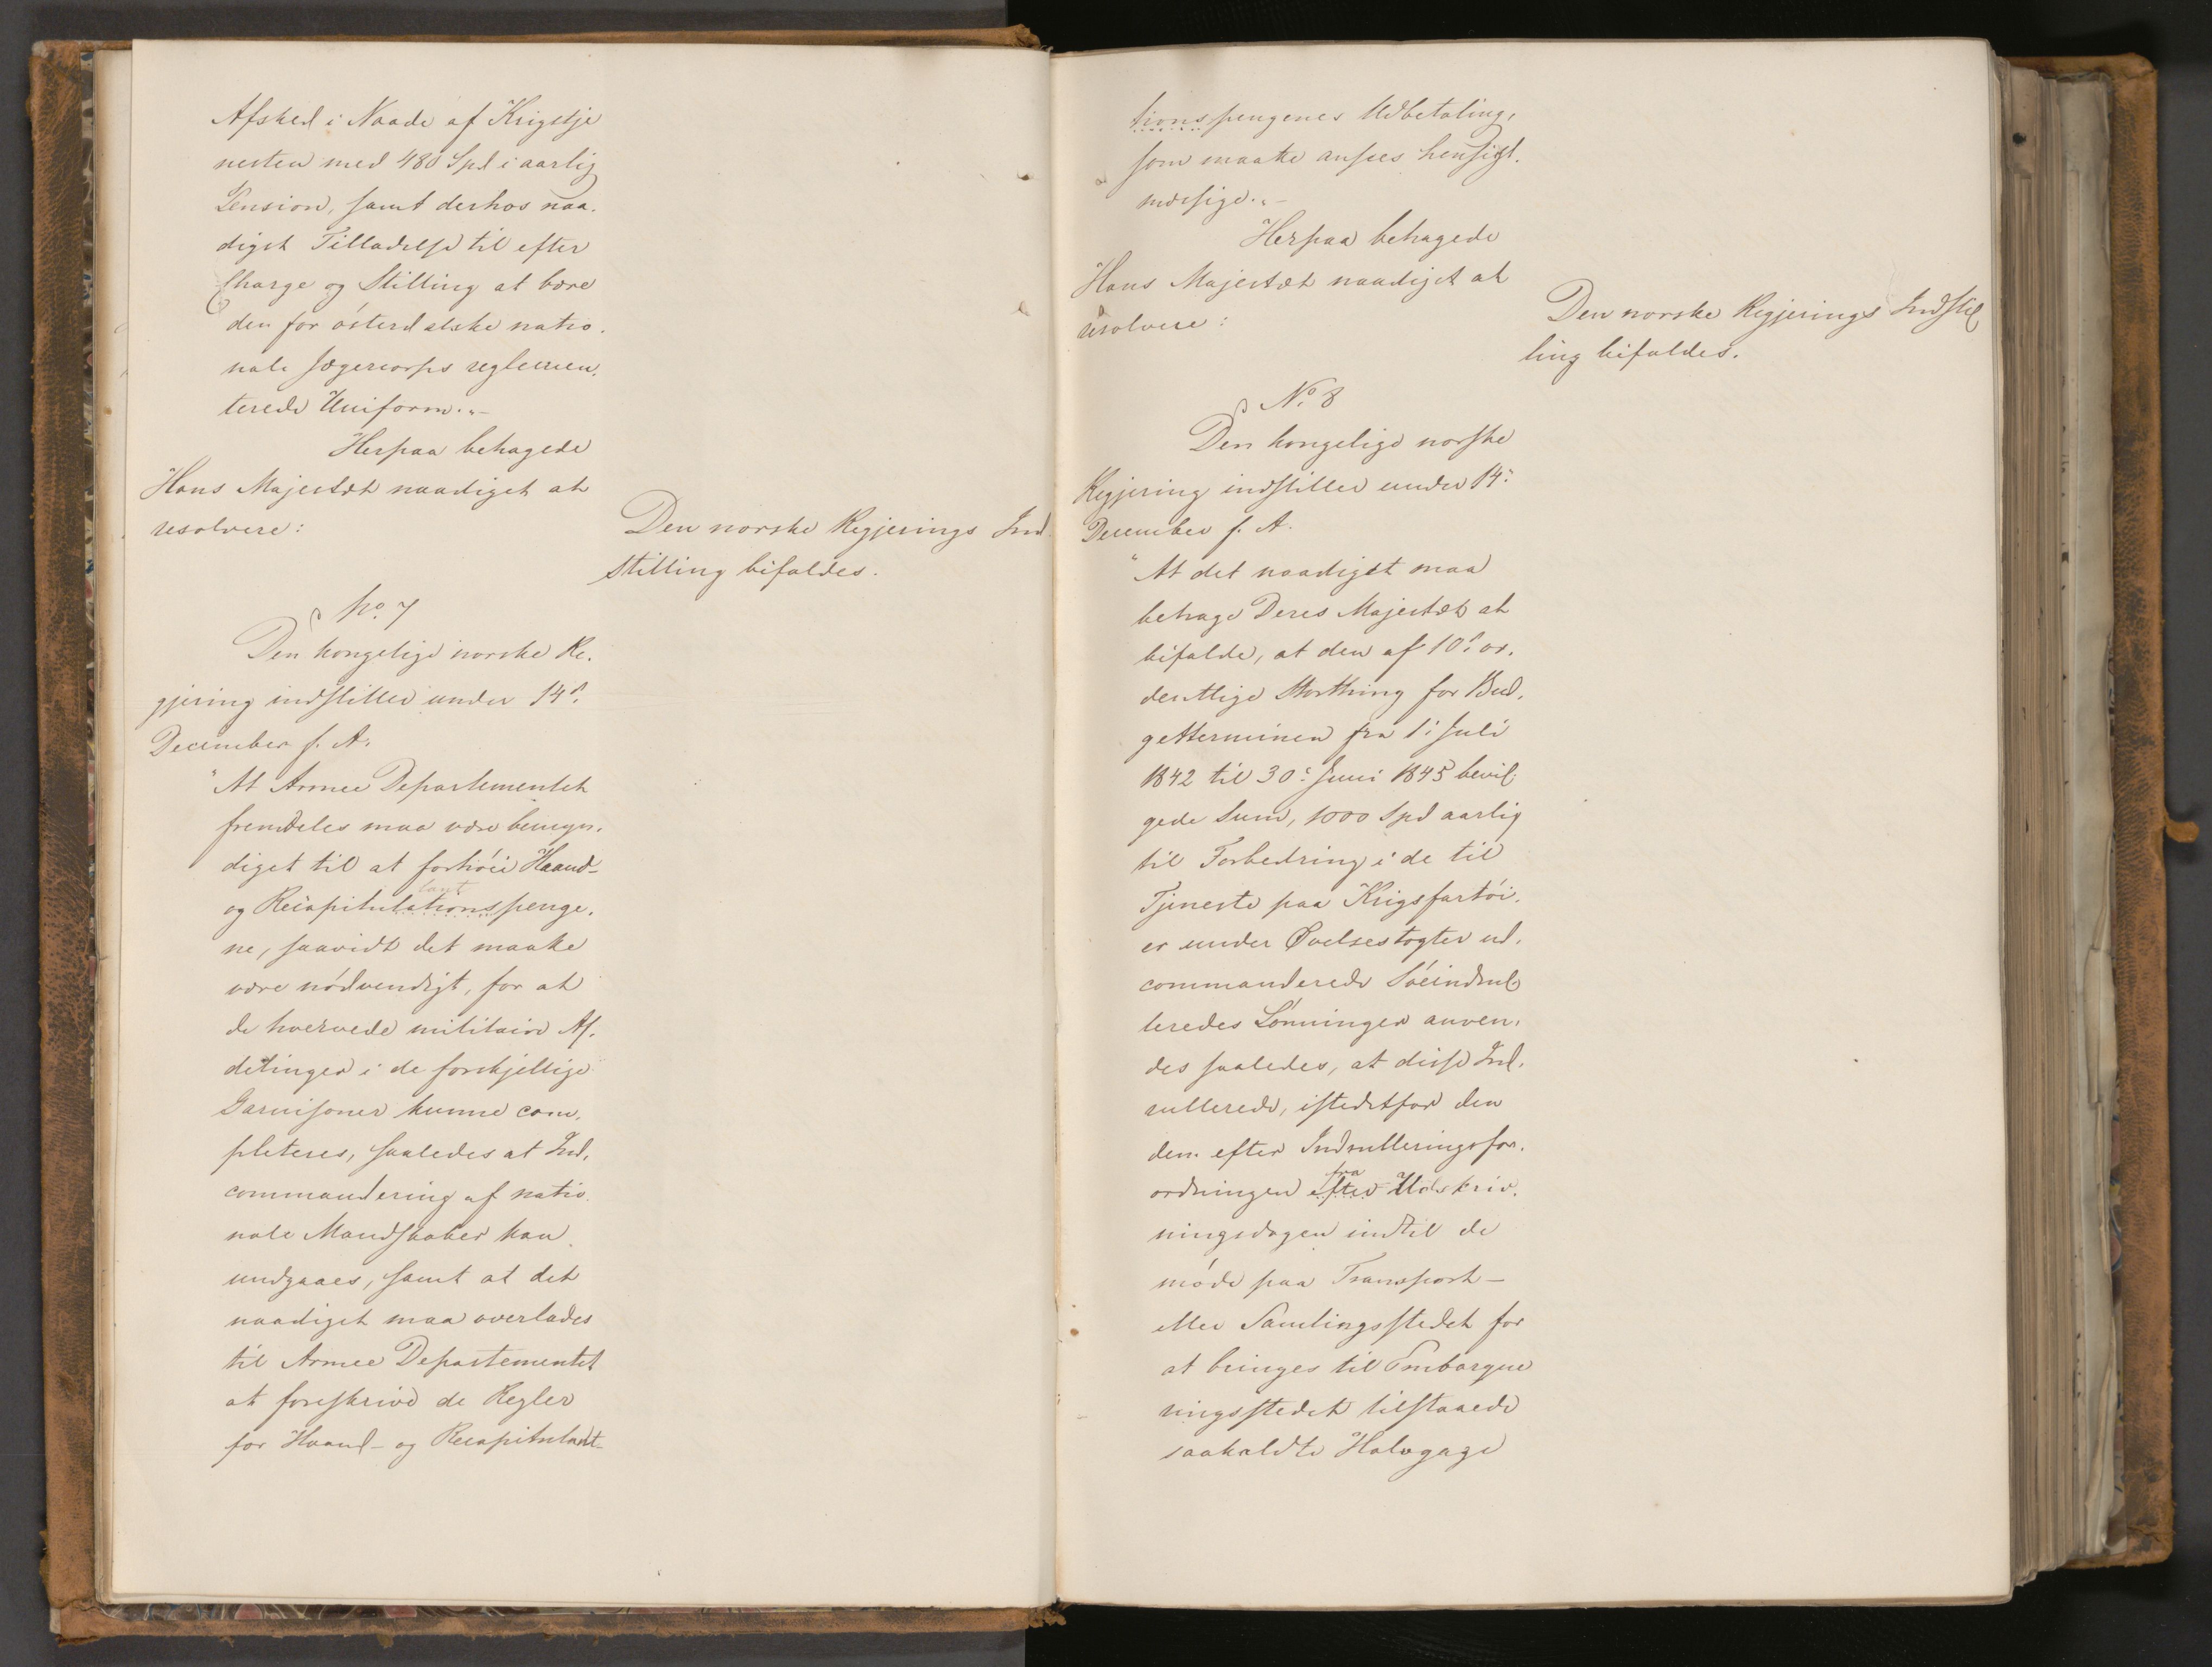 Afsked i Naade af Krigstje
nesten med 480 Spd i aarlig
Pension, samt derhos naa-
digst Tilladelse til efter
Charge og Stilling at bære
den for österdalske natio-
nale Jægercorps reglemen-
terede Uniform."-
Herpaa behagede
Hans Majestæt naadigst at
resolvere:
Den norske Regjerings Ind-
stilling bifaldes.
No. 7
Den kongelige norske Re-
gjering indstiller under 14de
December f. A.
"At Armee Departementet
fremdeles maa være bemyn-
diget til at forhöie Haand-
og Recapitulationspenge-
lant
ne, saavidt det maatte
være nödvendigt, for at
de hvervede militaire Af-
delinger i de forskjellige
Garnisoner kunne com-
pleteres, saaledes at Ind-
commandering af natio-
nale Mandskaber kan
undgaaes, samt at det
naadigst maa overlades
til Armee Departementet
at foreskrive de Regler
for Haand- og Recapitulant-
tionspengenes Udbetaling,
som maatte ansees hensigt-
mæssige."-
Herpaa behagede
Hans Majestæt naadigst at
resolvere:
Den norske Regjerings Indstil
ling bifaldes.
No. 8
Den kongelige norske
Regjering indstiller under 14:
December f. A.
"At det naadigst maa
behage Deres Majestæt at
bifalde, at den af 10de or-
dentlige Storthing for Bud-
getterminen fra 1: Juli
1842 til 30: Juni 1845 bevil-
gede Sum, 1000 Spd aarlig
til Forbedring i de til
Tjeneste paa Krigsfartöi-
er under Øvelsestogter ud-
commanderede Söeindrul-
leredes Lönninger anven-
des saaledes, at disse Ind-
rullerede, istedetfor den
dem efter Indrulleringsfor-
fra
ordningen efter Udskriv-
ningsdagen indtil de
möde paa Transport-
eller Samlingsstedet for
at bringes til Embarque
ringsstedet tilstaaede
saakaldte Halvgage